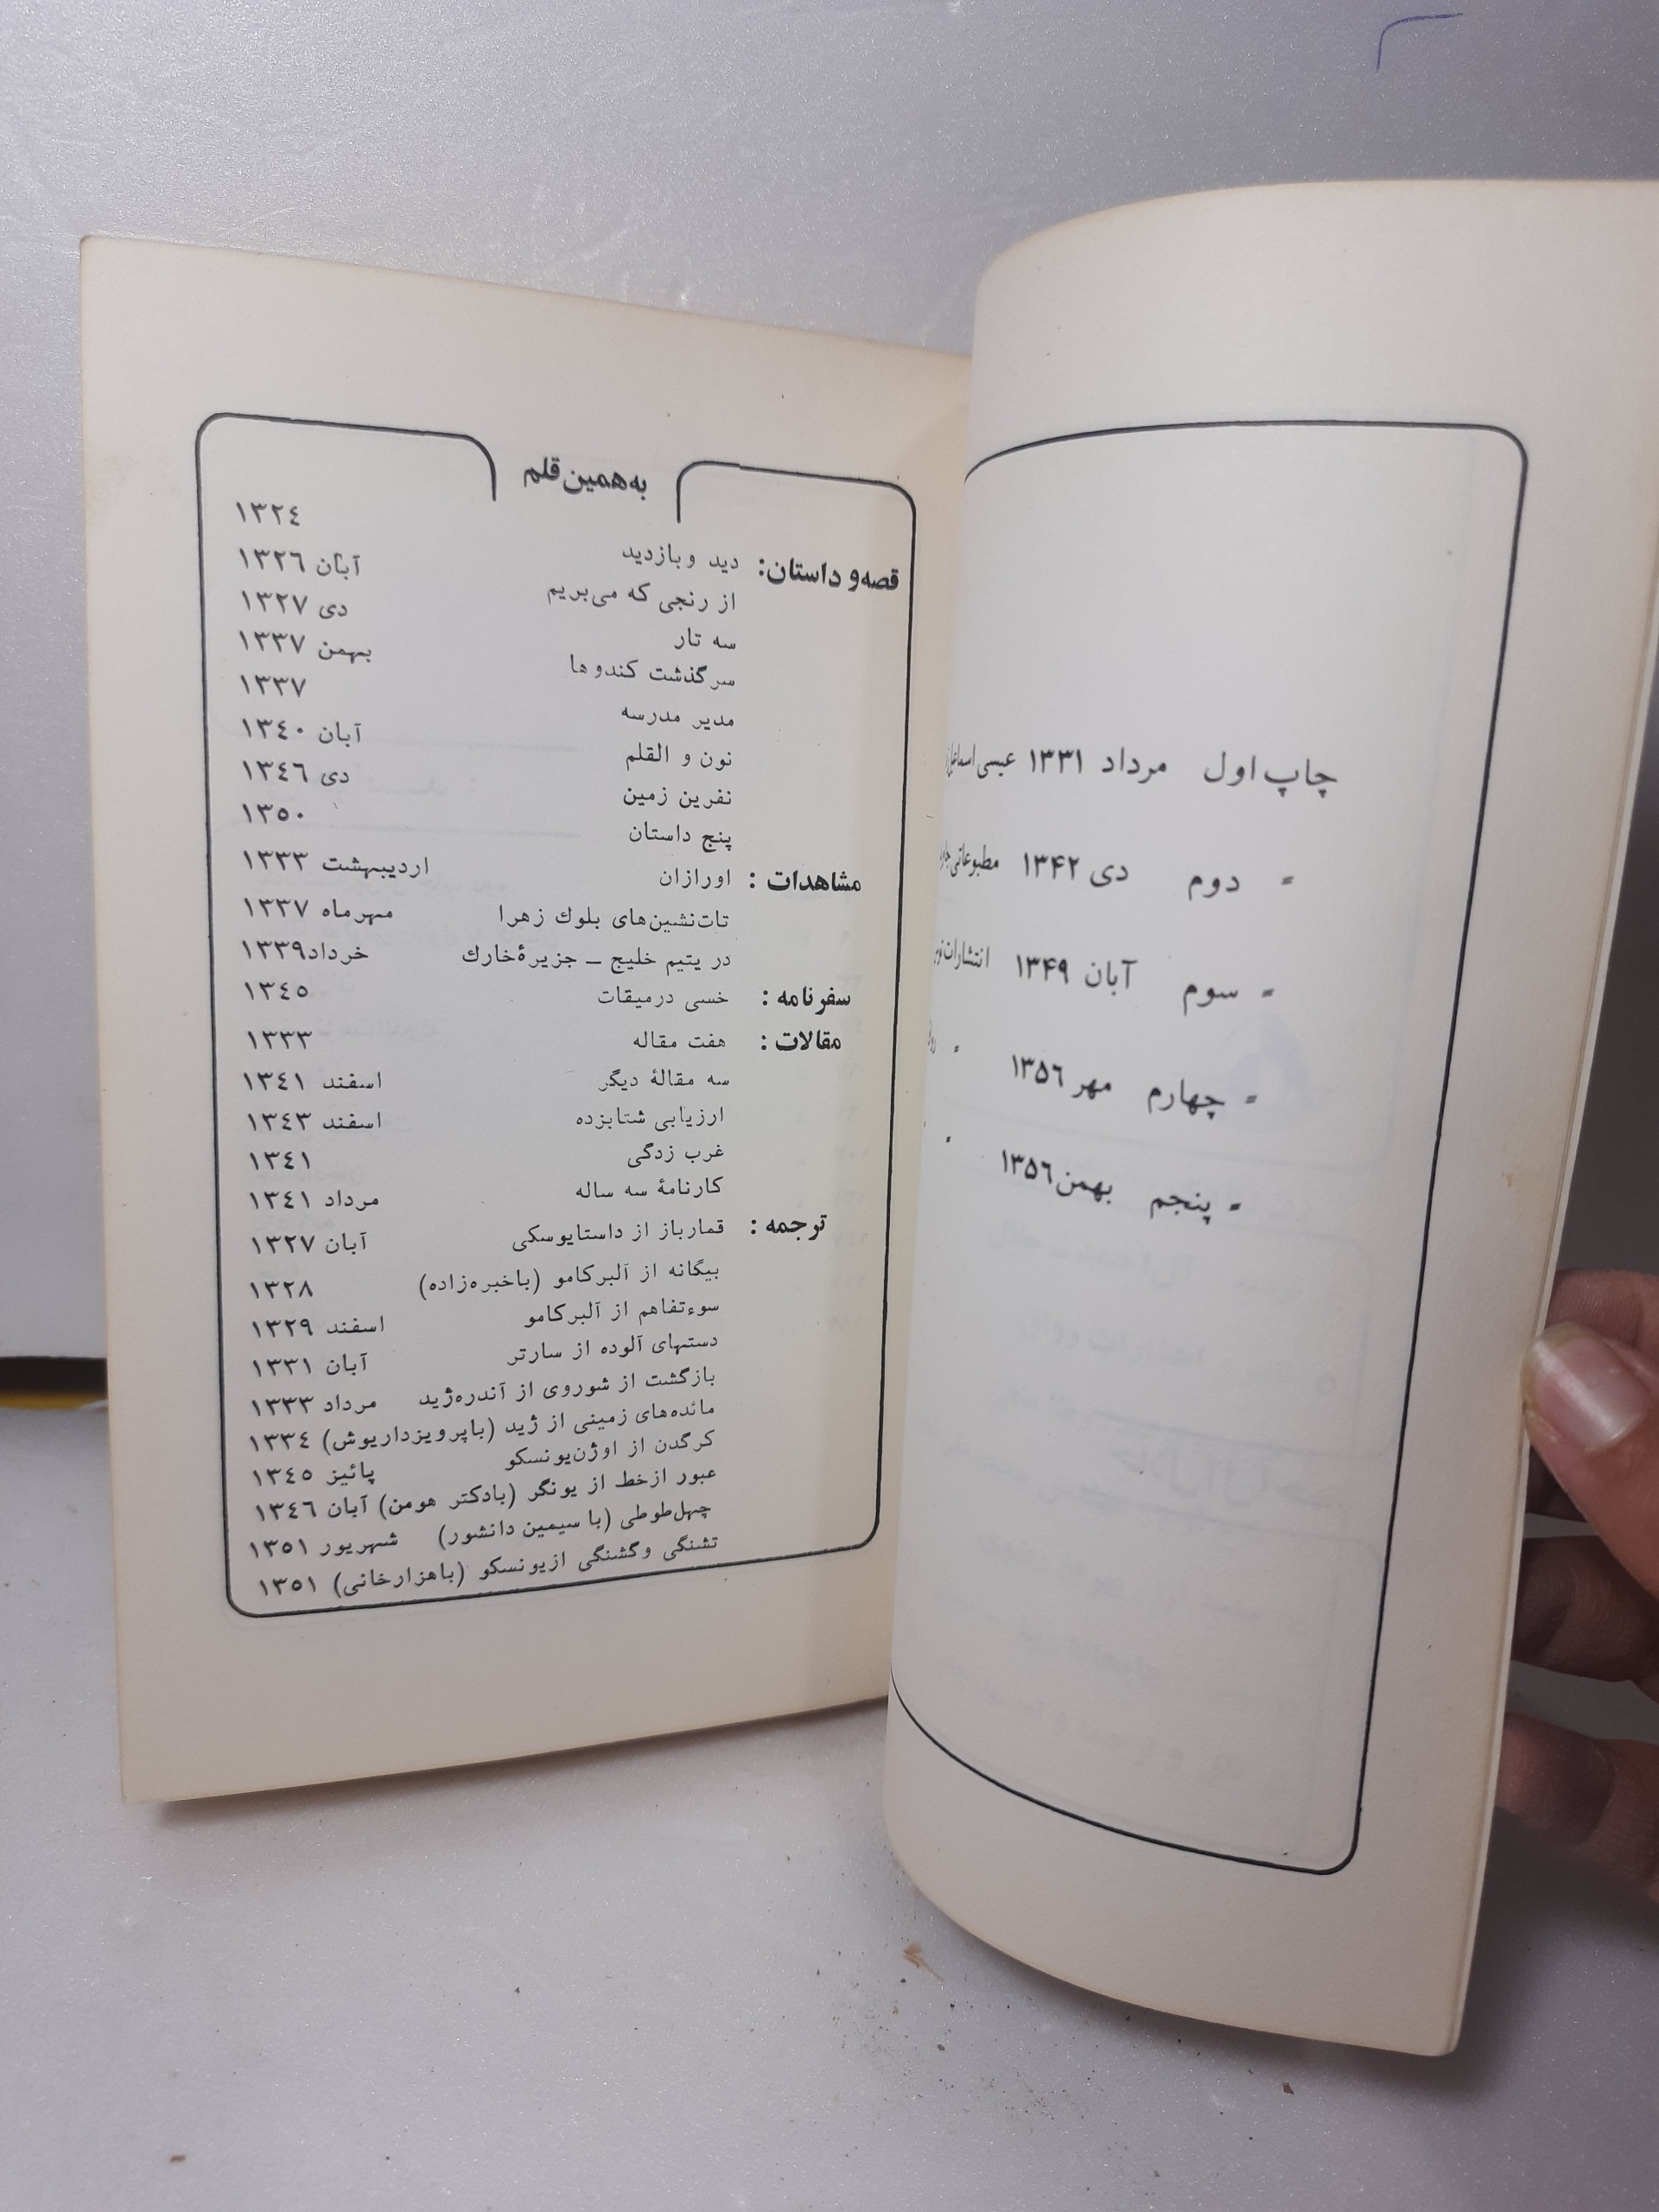 چاپ اول مرداد ۱۳۳۱ عیسی
= دوم دی ۱۳۴۲ مطبوعاتی
= سوم آبان ۱۳۴۹ انتشارات
= چهارم مهر ۱۳۵٦ "
= پنجم بهمن ۱۳۵٦ "
به همین قلم
قصه و داستان: دید و بازدید ۱۳۲٤
از رنجی که می‌بریم آبان ۱۳۲٦
سه تار دی ۱۳۲۷
سرگذشت کندوها بهمن ۱۳۳۷
مدیر مدرسه ۱۳۳۷
نون و القلم آبان ۱۳٤۰
نفرین زمین دی ۱۳٤٦
پنج داستان ۱۳٥۰
مشاهدات : اورازان اردیبهشت ۱۳۳۳
تات‌نشین‌های بلوك زهرا مهرماه ۱۳۳۷
در یتیم خلیج ــ جزیرهٔ خارك خرداد ۱۳۳۹
سفرنامه : خسی درمیقات ۱۳٤٥
مقالات : هفت مقاله ۱۳۳۳
سه مقالهٔ دیگر اسفند ۱۳٤۱
ارزیابی شتابزده اسفند ۱۳٤۳
غرب زدگی ۱۳٤۱
کارنامهٔ سه ساله مرداد ۱۳٤۱
ترجمه : قمارباز از داستایوسکی آبان ۱۳۲۷
بیگانه از آلبرکامو (باخبره‌زاده) ۱۳۲۸
سوءتفاهم از آلبرکامو اسفند ۱۳۲۹
دستهای آلوده از سارتر آبان ۱۳۳۱
بازگشت از شوروی از آندره‌ژید مرداد ۱۳۳۳
مائده‌های زمینی از ژید (باپرویزداریوش) ۱۳۳٤
کرگدن از اوژن‌یونسکو پائیز ۱۳٤٥
عبور ازخط از یونگر (بادکتر هومن) آبان ۱۳٤٦
چهل‌طوطی (با سیمین دانشور) شهریور ۱۳٥۱
تشنگی و گشنگی ازیونسکو (باهزارخانی) ۱۳٥۱